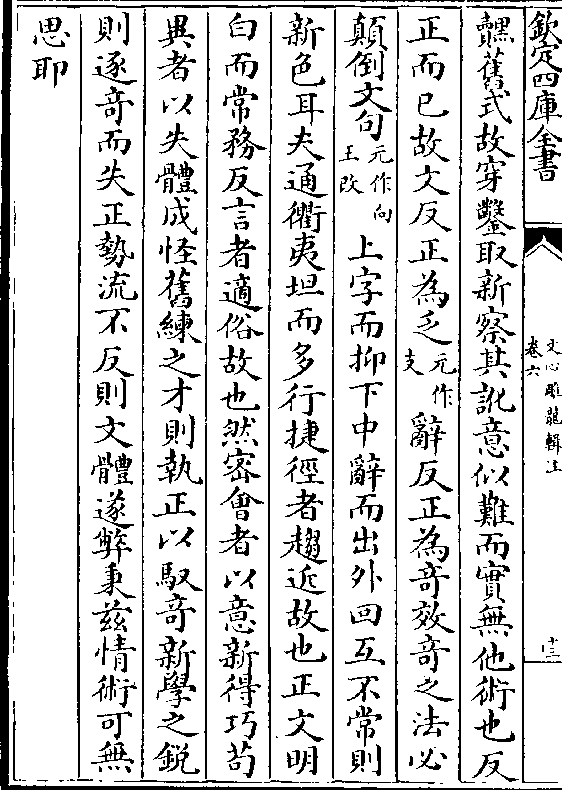 欽定四庫全書
文心雕龍輯注
卷六
十三
黷舊式故穿鑿取新察其訛意似難而實無他術也反
正而已故文反正為乏元作支辭反正為奇效奇之法必
顛倒文句元作向王改上字而抑下中辭而出外回互不常則
新色耳夫通衢夷坦而多行捷徑者趨近故也正文明
白而常務反言者適俗故也然密會者以意新得巧苟
異者以失體成怪舊練之才則執正以馭奇新學之銳
則逐奇而失正勢流不反則文體遂弊秉茲情術可無
思耶